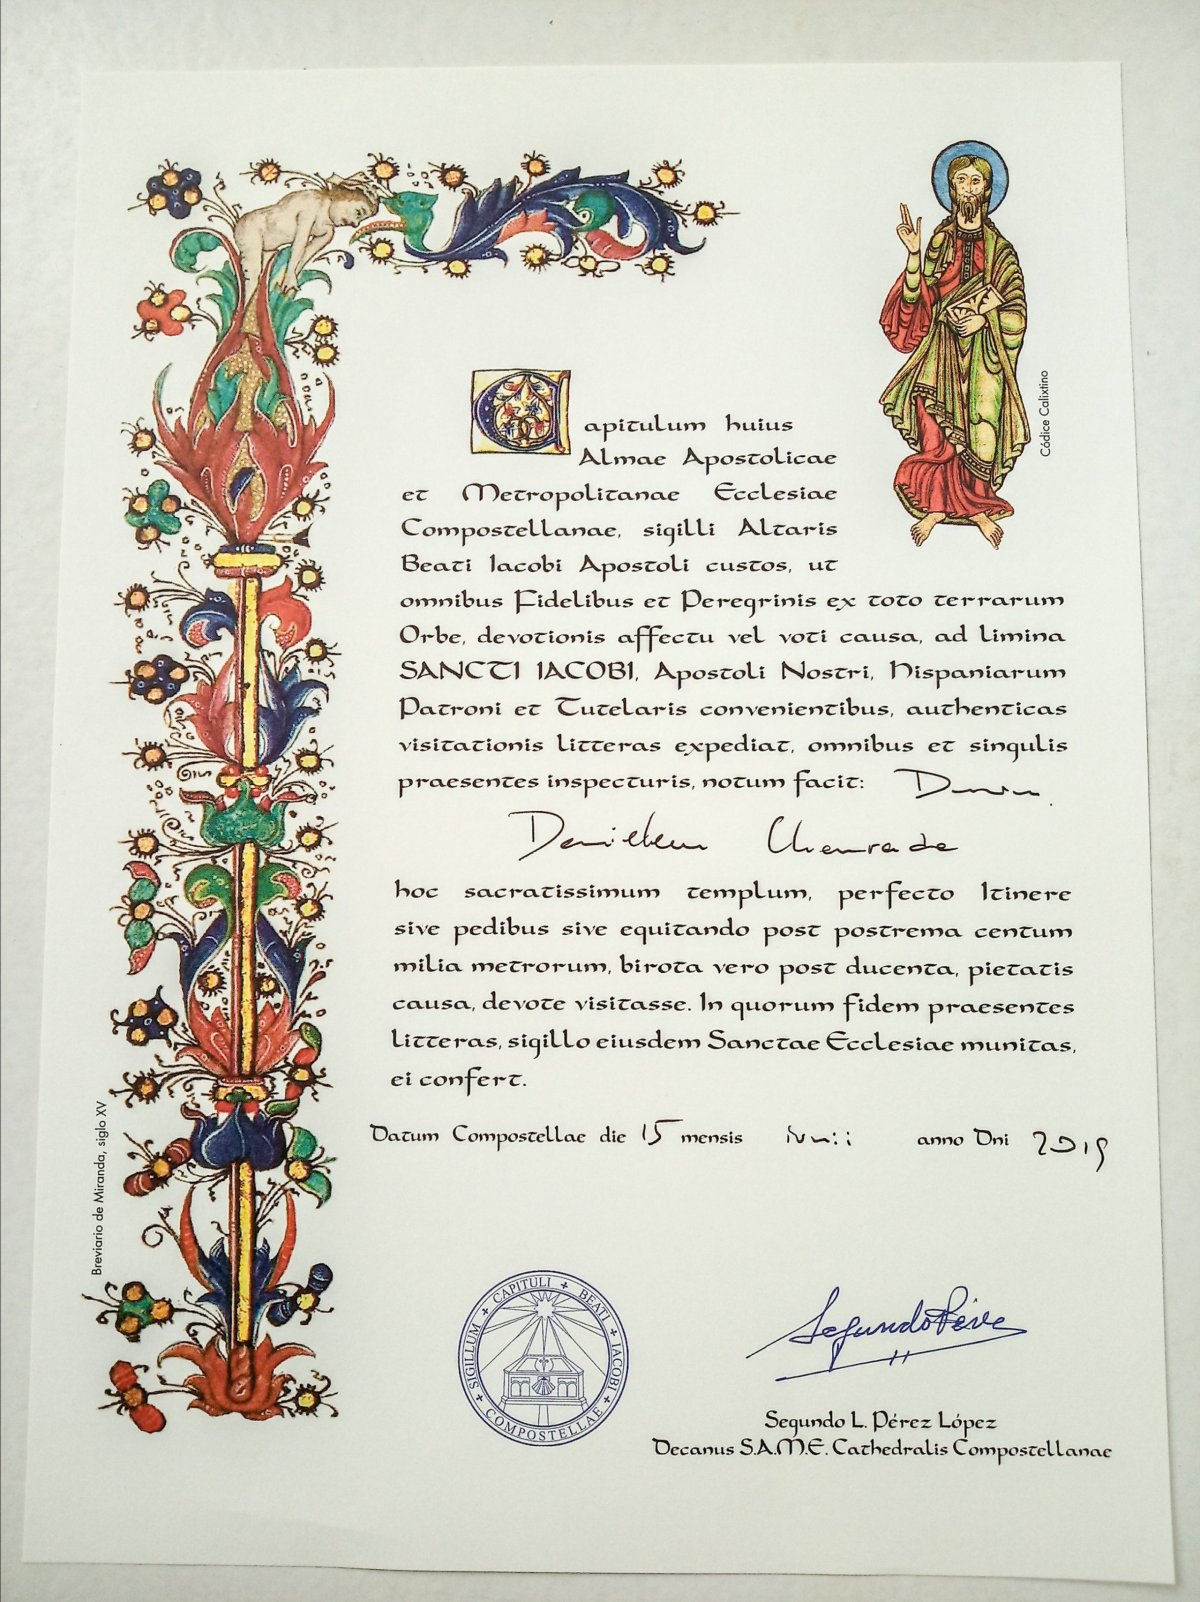 Códice Calixtino
Capitulum huius
Almae Apostolicae
et Metropolitanae Ecclesiae
Compostellanae, sigilli Altaris
Beati Iacobi Apostoli custos, ut
omnibus Fidelibus et Peregrinis ex toto terrarum
Orbe, devotionis affectu vel voti causa, ad limina
SANCTI IACOBI, Apostoli Nostri, Hispaniarum
Patroni et Tutelaris convenientibus, authenticas
visitationis litteras expediat, omnibus et singulis
praesentes inspecturis, notum facit:
hoc sacratissimum templum, perfecto Itinere
sive pedibus sive equitando post postrema centum
milia metrorum, birota vero post ducenta, pietatis
causa, devote visitasse. In quorum fidem praesentes
litteras, sigillo eiusdem Sanctae Ecclesiae munitas,
ei confert.
Datum Compostellae die 15 mensis iunii anno Dni 2019
Breviario de Miranda, siglo XV
SIGILLUM + CAPITULI + BEATI + IACOBI + COMPOSTELLAE +
Segundo Pérez
Segundo L. Pérez López
Decanus S.A.M.E. Cathedralis Compostellanae